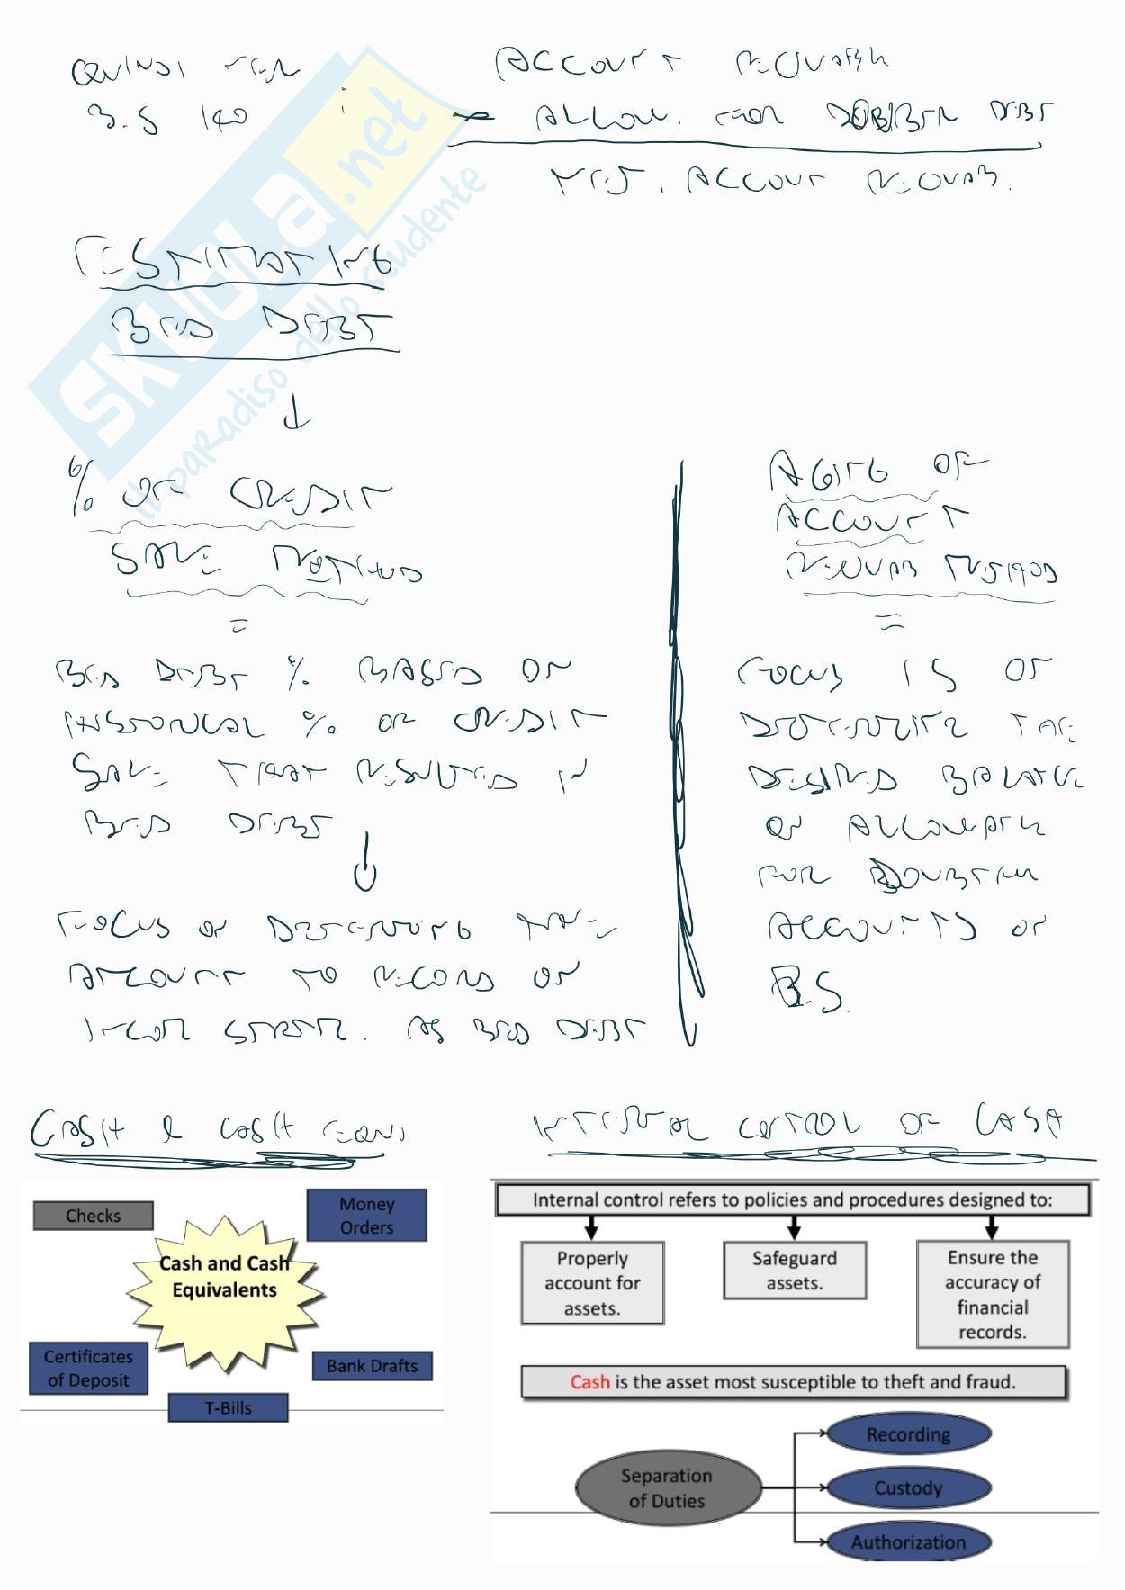 ACCOUNT
B.S
ALLOW. FOR DEBT
ACCOUNT
ESTIMATING
BAD DEBT
% OF CREDIT
SALE METHOD
=
BAD DEBT % BASED ON
HISTORICAL % OF CREDIT
SALE THAT RESULTED IN
BAD DEBT
FOCUS ON DETERMINING THE
AMOUNT TO RECORD ON
INCOM STATEM. AS BAD DEBT
AGING OF
ACCOUNT
METHOD
=
FOCUS IS ON
THE
DESIRED BALANCE
OF
FOR
ACCOUNTS ON
B.S.
CASH & CASH EQUIV
INTERNAL CONTROL OF CASH
Checks
Money
Orders
Cash and Cash
Equivalents
Certificates
of Deposit
Bank Drafts
T-Bills
Internal control refers to policies and procedures designed to:
Properly
account for
assets.
Safeguard
assets.
Ensure the
accuracy of
financial
records.
Cash is the asset most susceptible to theft and fraud.
Separation
of Duties
Recording
Custody
Authorization
SKUOLA.net
il paradiso dello studente